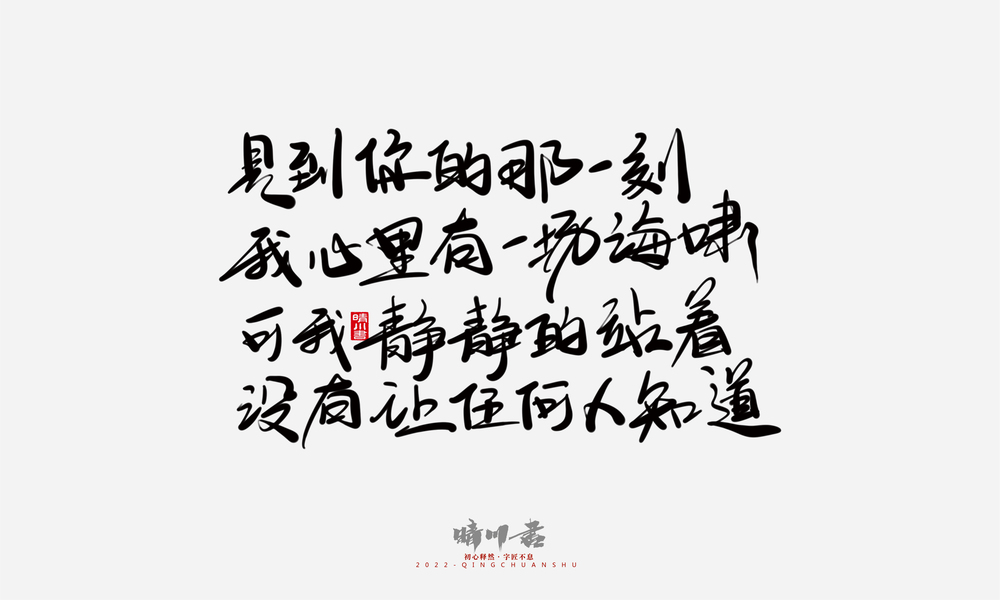 見到你的那一刻
我心里有一场海啸
可我静静的站着
晴川書
没有让任何人知道
晴川书
初心释然·字匠不息
2022-QINGCHUANSHU